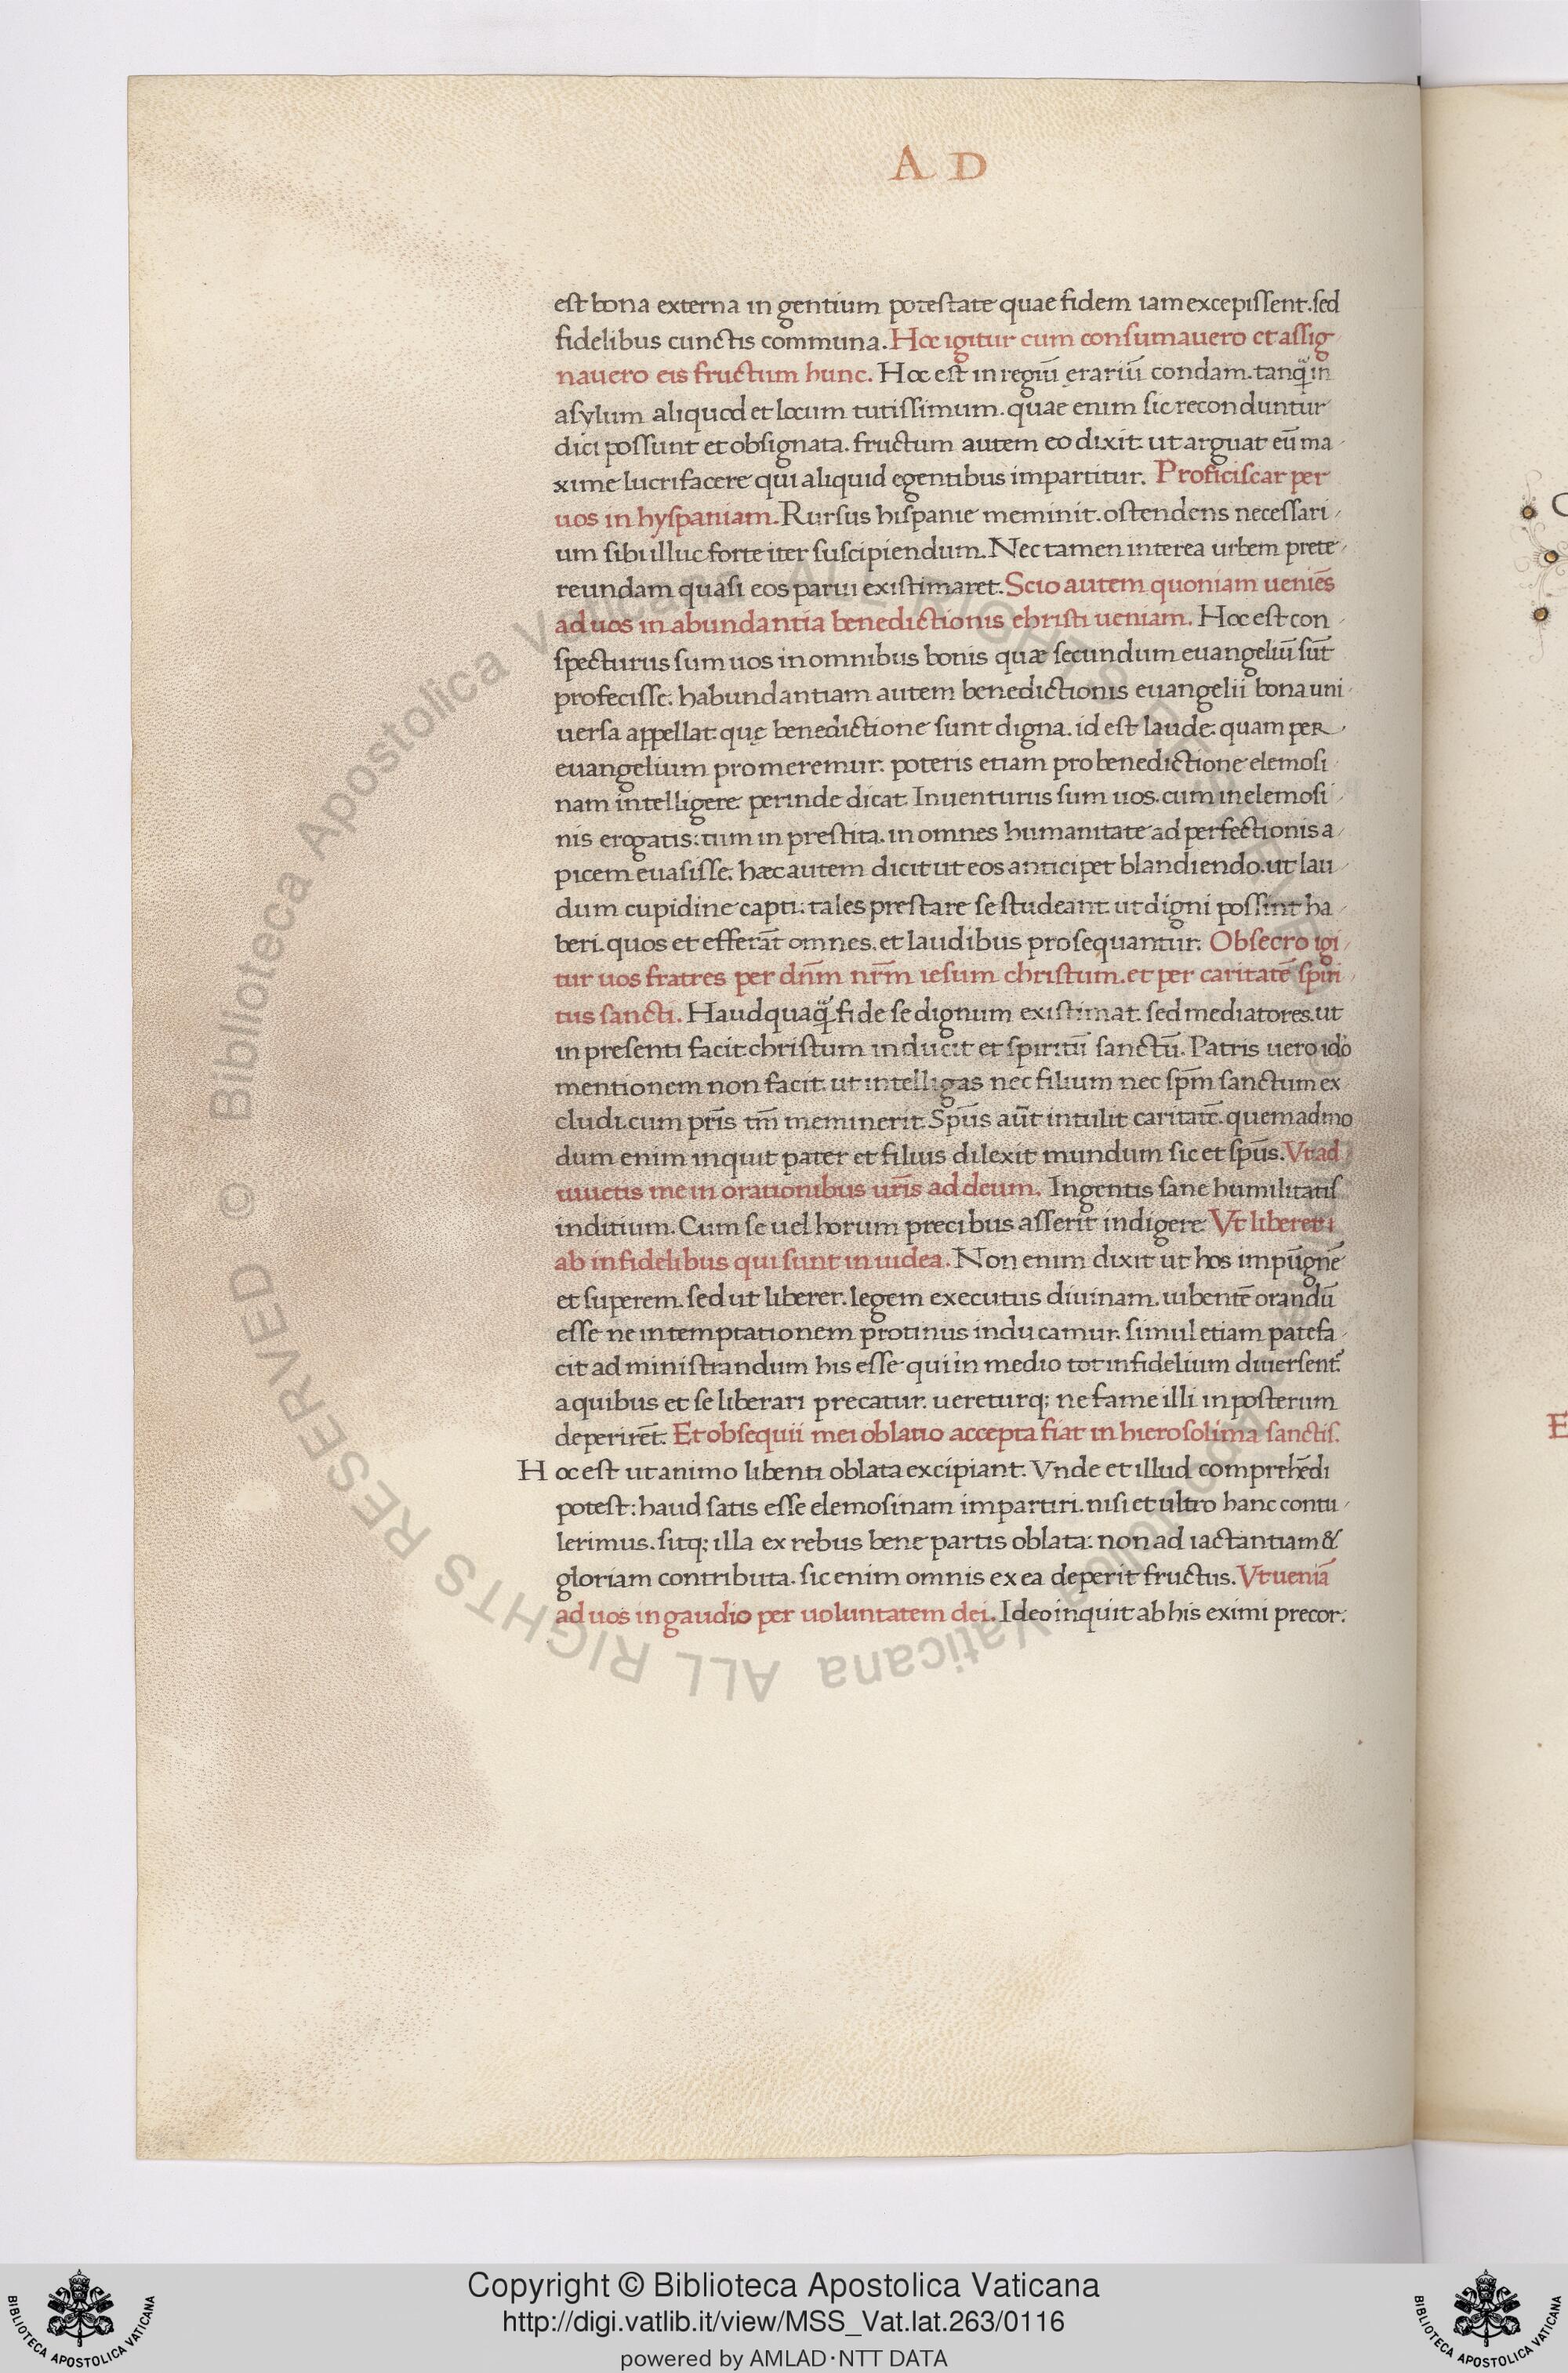 A D
est bona externa in gentium potestate quae fidem iam excepissent. sed
fidelibus cunctis communa. Hoc igitur cum consumauero et assig
nauero eis fructum hunc. Hoc est in regiū ęrariū condam. tanq̃ in
asylum aliquod et locum tutissimum. quae enim sic reconduntur
dici possunt et obsignata. fructum autem eo dixit ut arguat eū ma
xime lucrifacere qui aliquid egentibus impartitur. Proficiscar per
uos in hyspaniam. Rursus hispanie meminit. ostendens necessari
um sibi illuc forte iter suscipiendum. Nec tamen interea urbem prete
reundam quasi eos parui existimaret. Scio autem quoniam ueniēs
ad uos in abundantia benedictionis christi ueniam. Hoc est con
specturus sum uos in omnibus bonis quæ secundum euangeliū sūt
profecisse. habundantiam autem benedictionis euangelii bona uni
uersa appellat. quę benedictione sunt digna. id est laude. quam per
euangelium promeremur. poteris etiam pro benedictione elemosi
nam intelligere. perinde dicat. Inuenturus sum uos. cum in elemosi
nis erogatis: tum in prestita. in omnes humanitate ad perfectionis a
picem euasisse. hæc autem dicit ut eos anticipet blandiendo. ut lau
dum cupidine capti: tales prestare se studeant. ut digni possint ha
beri. quos et efferāt omnes. et laudibus prosequantur. Obsecro igi
tur uos fratres per dn̄m nr̄m iesum christum. et per caritatē spiri
tus sancti. Haudquaq̃ fide se dignum existimat. sed mediatores. ut
in presenti facit. christum inducit et spiritū sanctū. Patris uero ido
mentionem non facit. ut intelligas nec filium nec sp̄m sanctum ex
cludi. cum pr̄is tm̄ meminerit. Sp̄us aūt intulit caritatē. quemadmo
dum enim inquit pater et filius dilexit mundum sic et sp̄us. Vt ad
iuuetis me in orationibus ur̄is ad deum. Ingentis sane humilitatis
inditium. Cum se uel horum precibus asserit indigere. Vt liberer
ab infidelibus qui sunt in iudea. Non enim dixit ut hos impūgnē
et superem. sed ut liberer. legem executus diuinam. iubentē orandū
esse ne in temptationem protinus inducamur. simul etiam patefa
cit ad ministrandum his esse qui in medio tot infidelium diuersent̃.
a quibus et se liberari precatur. uereturq; ne fame illi in posterum
deperirēt. Et obsequii mei oblatio accepta fiat in hierosolima sanctis.
Hoc est ut animo libenti oblata excipiant. Vnde et illud comprehēdi
potest: haud satis esse elemosinam impartiri. nisi et ultro hanc contu
lerimus. sitq; illa ex rebus bene partis oblata: non ad iactantiam &
gloriam contributa. sic enim omnis ex ea deperit fructus. Vt ueniā
ad uos in gaudio per uoluntatem dei. Ideo inquit ab his eximi precor.
E
© Biblioteca Apostolica Vaticana ALL RIGHTS RESERVED © Biblioteca Apostolica Vaticana ALL RIGHTS RESERVED
Copyright © Biblioteca Apostolica Vaticana
http://digi.vatlib.it/view/MSS_Vat.lat.263/0116
powered by AMLAD·NTT DATA
BIBLIOTECA APOSTOLICA VATICANA
BIBLIOTECA APOSTOLICA VATICANA